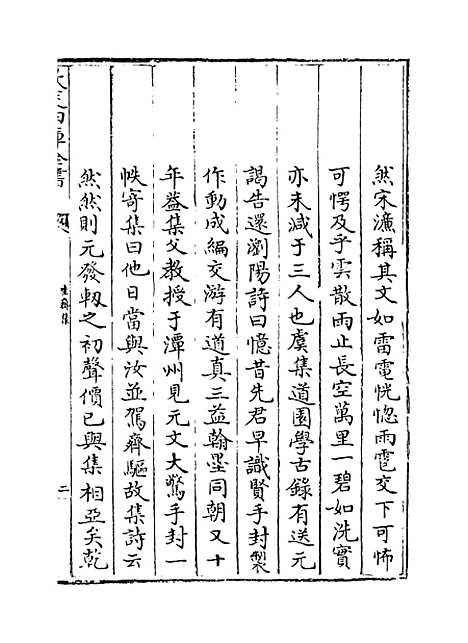 然宋濂稱其文如雷電恍惚雨雹交下可怖
可愕及乎雲散雨止長空萬里一碧如洗實
亦未減于三人也虞集道園學古錄有送元
謁告還瀏陽詩曰憶昔先君早識賢手封製
作動成編交游有道真三益翰墨同朝又十
年葢集父教授于潭州見元文大驚手封一
帙寄集曰他日當與汝並駕齊驅故集詩云
然然則元發軔之初聲價已與集相亞矣乾
欽定四庫全書
圭齋集
二